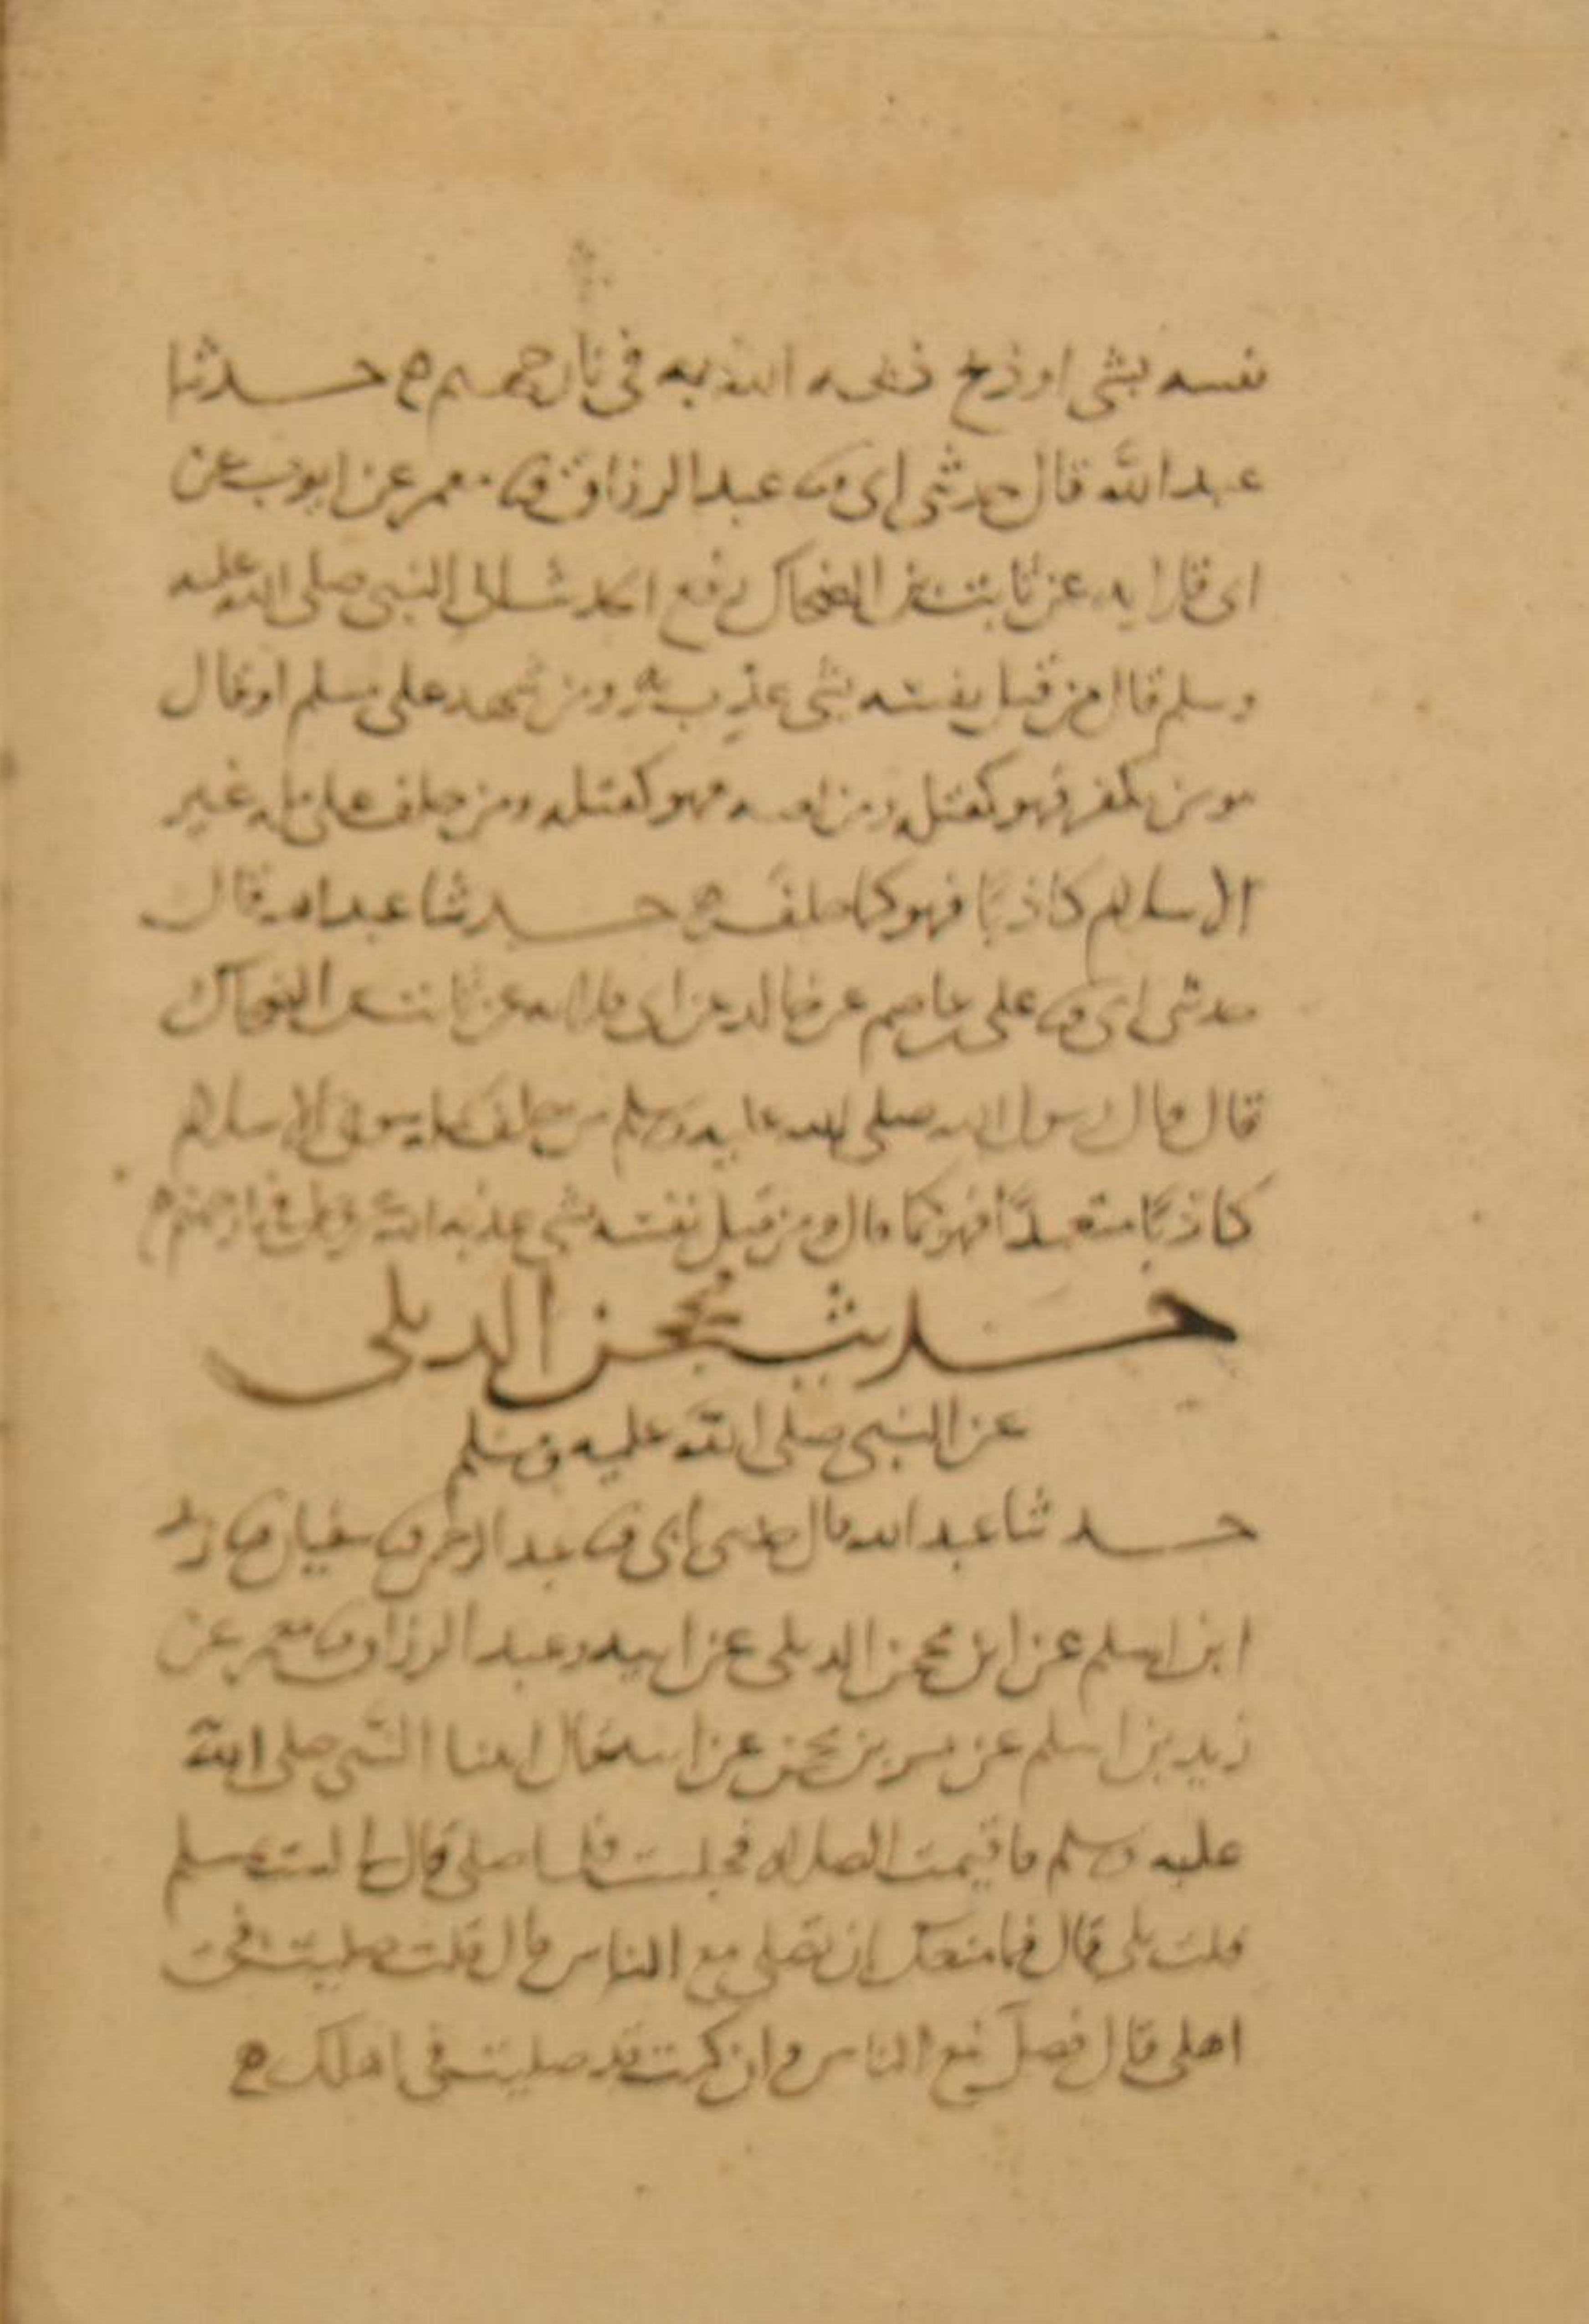 نفسه بشى او ذبح ذبحه الله به فى نار جهنم ه حدثنا
عبد الله قال حدثنى ابى ثنا عبد الرزاق ثنا معمر عن ايوب عن
ابى قلابه عن ثابت بن الضحاك رفع الحديث الى النبى صلى الله عليه
وسلم قال من قتل نفسه بشى عذب به ومن شهد على مسلم او قال
مومن بكفر فهو كقتله ومن لعنه فهو كقتله ومن حلف على مله غير
الاسلام كاذبا فهو كما حلف ه حدثنا عبد الله قال
حدثنى ابى ثنا على بن عاصم عن خالد عن ابى قلابه عن ثابت بن الضحاك
قال قال رسول الله صلى الله عليه وسلم من حلف بمله سوى الاسلام
كاذبا متعمدا فهو كما قال ومن قتل نفسه بشى عذبه الله عز وجل فى نار جهنم ه
حديث محجن الديلى
عن النبى صلى الله عليه وسلم
حدثنا عبد الله قال حدثنى ابى ثنا عبد الرحمن ثنا سفيان ثنا زيد
ابن اسلم عن ابن محجن الديلى عن ابيه وعبد الرزاق ثنا معمر عن
زيد بن اسلم عن بسر بن محجن عن ابيه قال اتينا النبى صلى الله
عليه وسلم فاقيمت الصلاه فجلست فلما صلى قال لى الست بمسلم
قلت بلى قال فما منعك ان تصلى مع الناس قال قلت صليت فى
اهلى قال فصل مع الناس وان كنت قد صليت فى اهلك ه